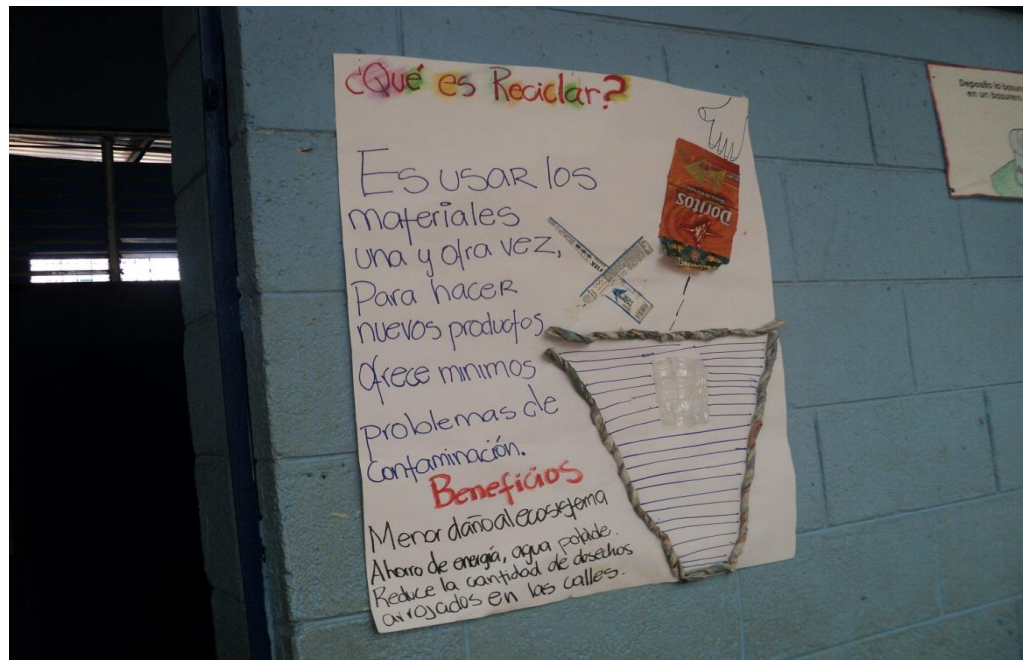 ¿Qué es Reciclar?
Es usar los
materiales
una y otra vez,
Para hacer
nuevos productos
ofrece minimos
problemas de
contaminación.
Beneficios
Menor daño al ecosistema
Ahorro de energía, agua potable.
Reduce la cantidad de desechos
arrojados en las calles.
Doritos
Deposito la basura
en un basurero